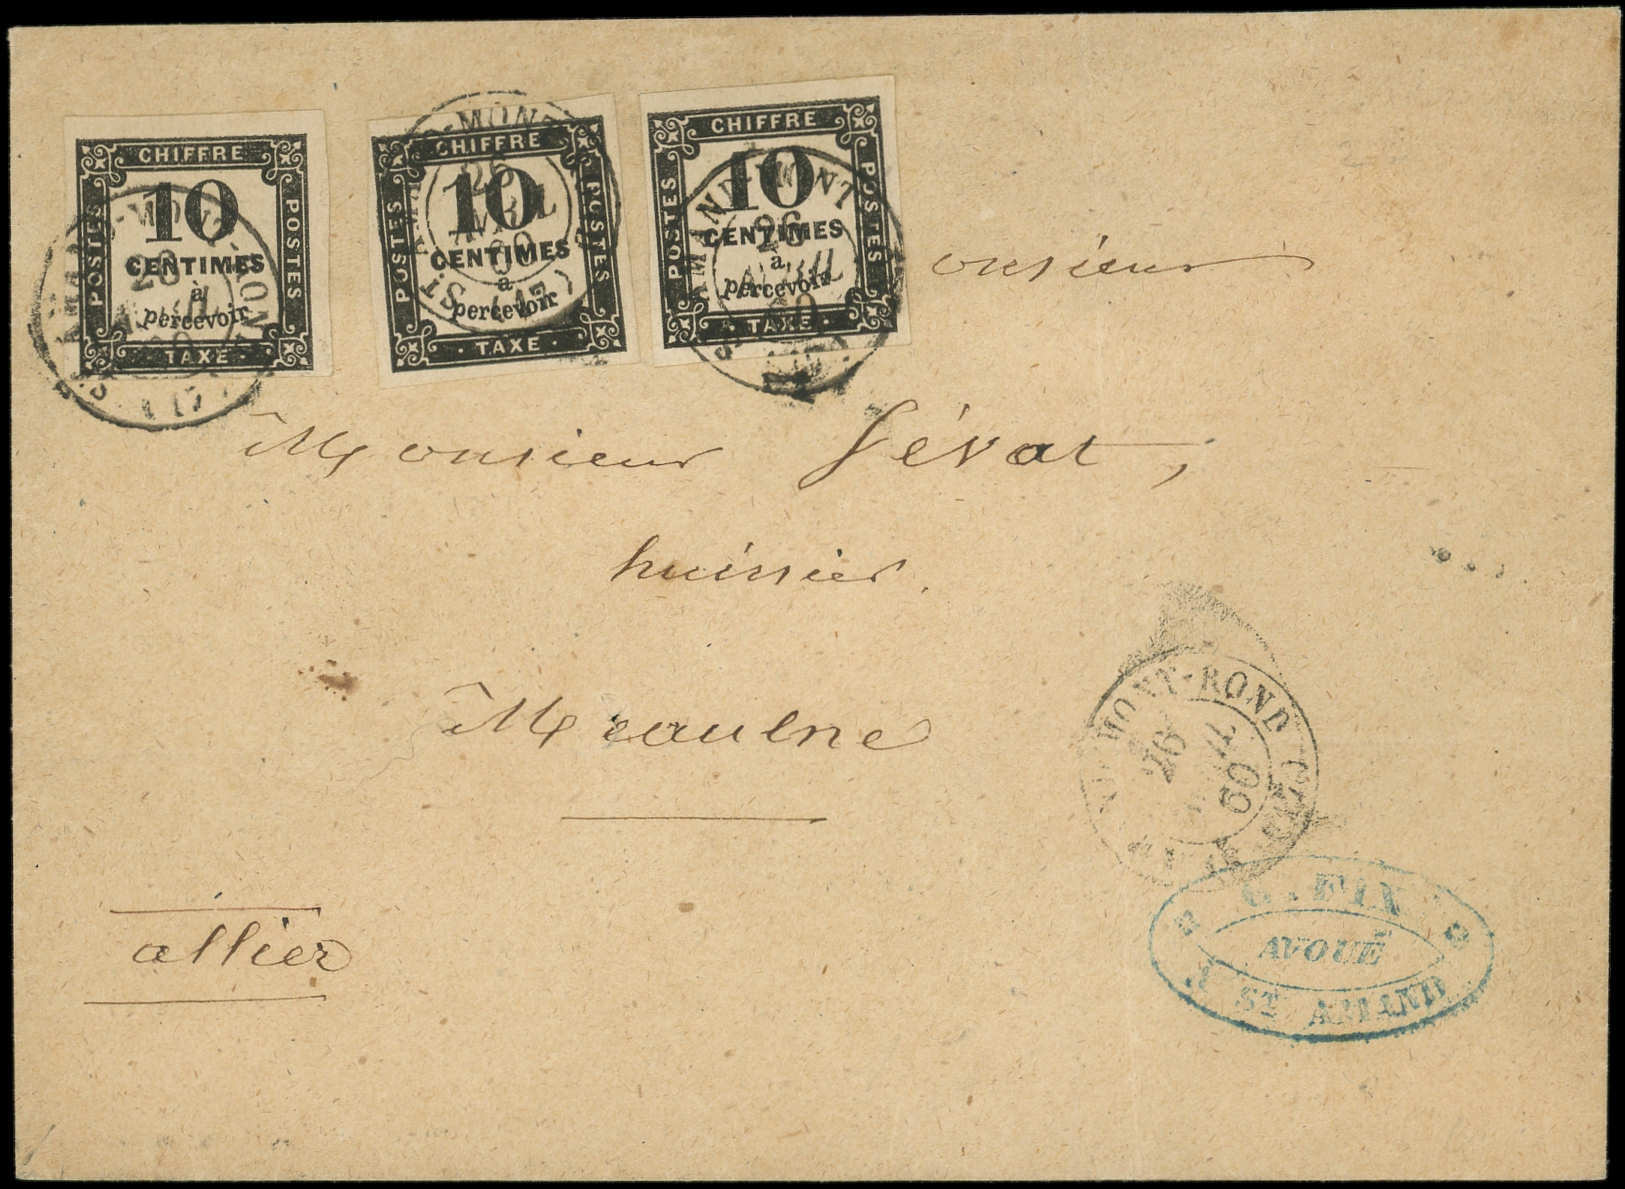 CHIFFRE
POSTES
10
CENTIMES
à
percevoir
POSTES
TAXE
CHIFFRE
POSTES
10
CENTIMES
à
percevoir
POSTES
TAXE
CHIFFRE
POSTES
10
CENTIMES
à
percevoir
POSTES
TAXE
26
AVRIL
60
onsieur
Monsieur Sévat,
huissier
Meaulne
allier
MONT-ROND
26
60
C. FIX
AVOUÉ
ST AMAND